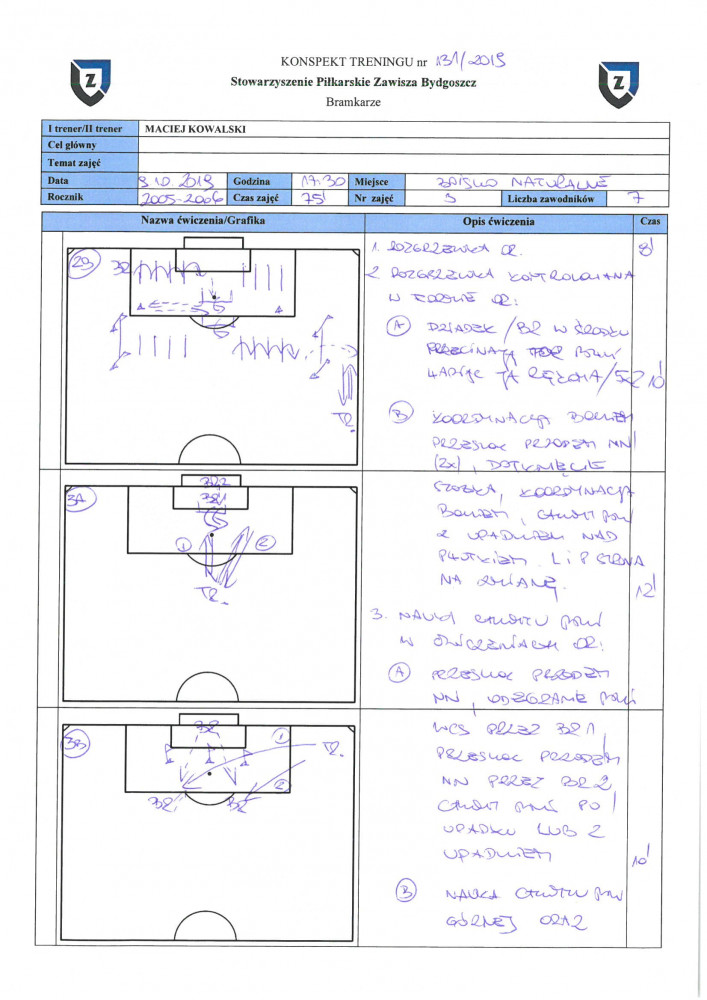 KONSPEKT TRENINGU nr 131/2019
Stowarzyszenie Piłkarskie Zawisza Bydgoszcz
Bramkarze
Z
Z
I trener/II trener MACIEJ KOWALSKI
Cel główny
Temat zajęć
Data 9.10.2019 Godzina 17:30 Miejsce BOISKO NATURALNE
Rocznik 2005-2006 Czas zajęć 75' Nr zajęć 3 Liczba zawodników 7
Nazwa ćwiczenia/Grafika Opis ćwiczenia Czas
2B BR TR.
1. ROZGRZEWKA OR. 8'
2. ROZGRZEWKA KONTROLOWANA
W FORMIE OR:
A DZIADEK / BR W ŚRODKU
PRZECINAJĄ TOR PIŁKI
ŁAPIĄC JĄ RĘKOMA / 10'
B KOORDYNACJA BOKIEM
PRZESKOK PRZODEM NN
(2x), DOTKNIĘCIE
3A BR2 BR1 1 2 TR.
KOORDYNACJA
BOKIEM, CHWYT PIŁKI
Z UPADKIEM NAD
PŁOTKIEM. L i P STRONA
NA ZMIANĘ. 12'
3. NAUKA CHWYTU PIŁKI
W ĆWICZENIACH OR:
A PRZESKOK PRZODEM
NN, ODEGRANIE PIŁKI
3B BR 1 TR. 2 BR BR
WCS PRZEZ BR1,
PRZESKOK PRZODEM
NN PRZEZ BR2
CHWYT PIŁKI PO
UPADKU LUB Z
UPADKIEM 10'
B NAUKA CHWYTU PIŁKI
GÓRNEJ ORAZ